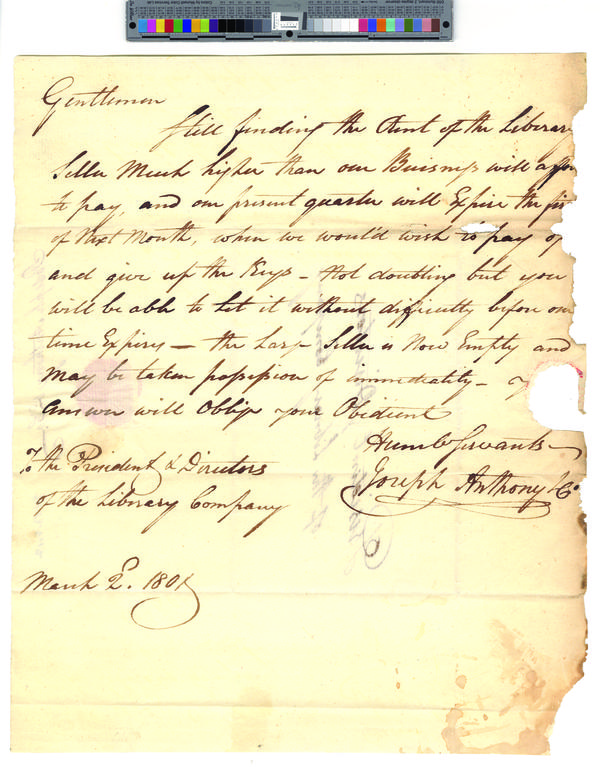 Gentlemen
Still finding the Rent of the Library
Seller Much higher than our Buisness will affor
to pay, and our present quarter will Expire the fir
of Next Month, when we would wish to pay of
and give up the Keys - Not doubting but you
will be able to Let it without difficulty before our
time Expires - the Large Seller is Now Empty and
may be taken possession of immediately -
answer will Oblige your Obedient
Humble Servants
To the President & Directors
Joseph Anthony & Co.
of the Library Company
March 2d. 1801